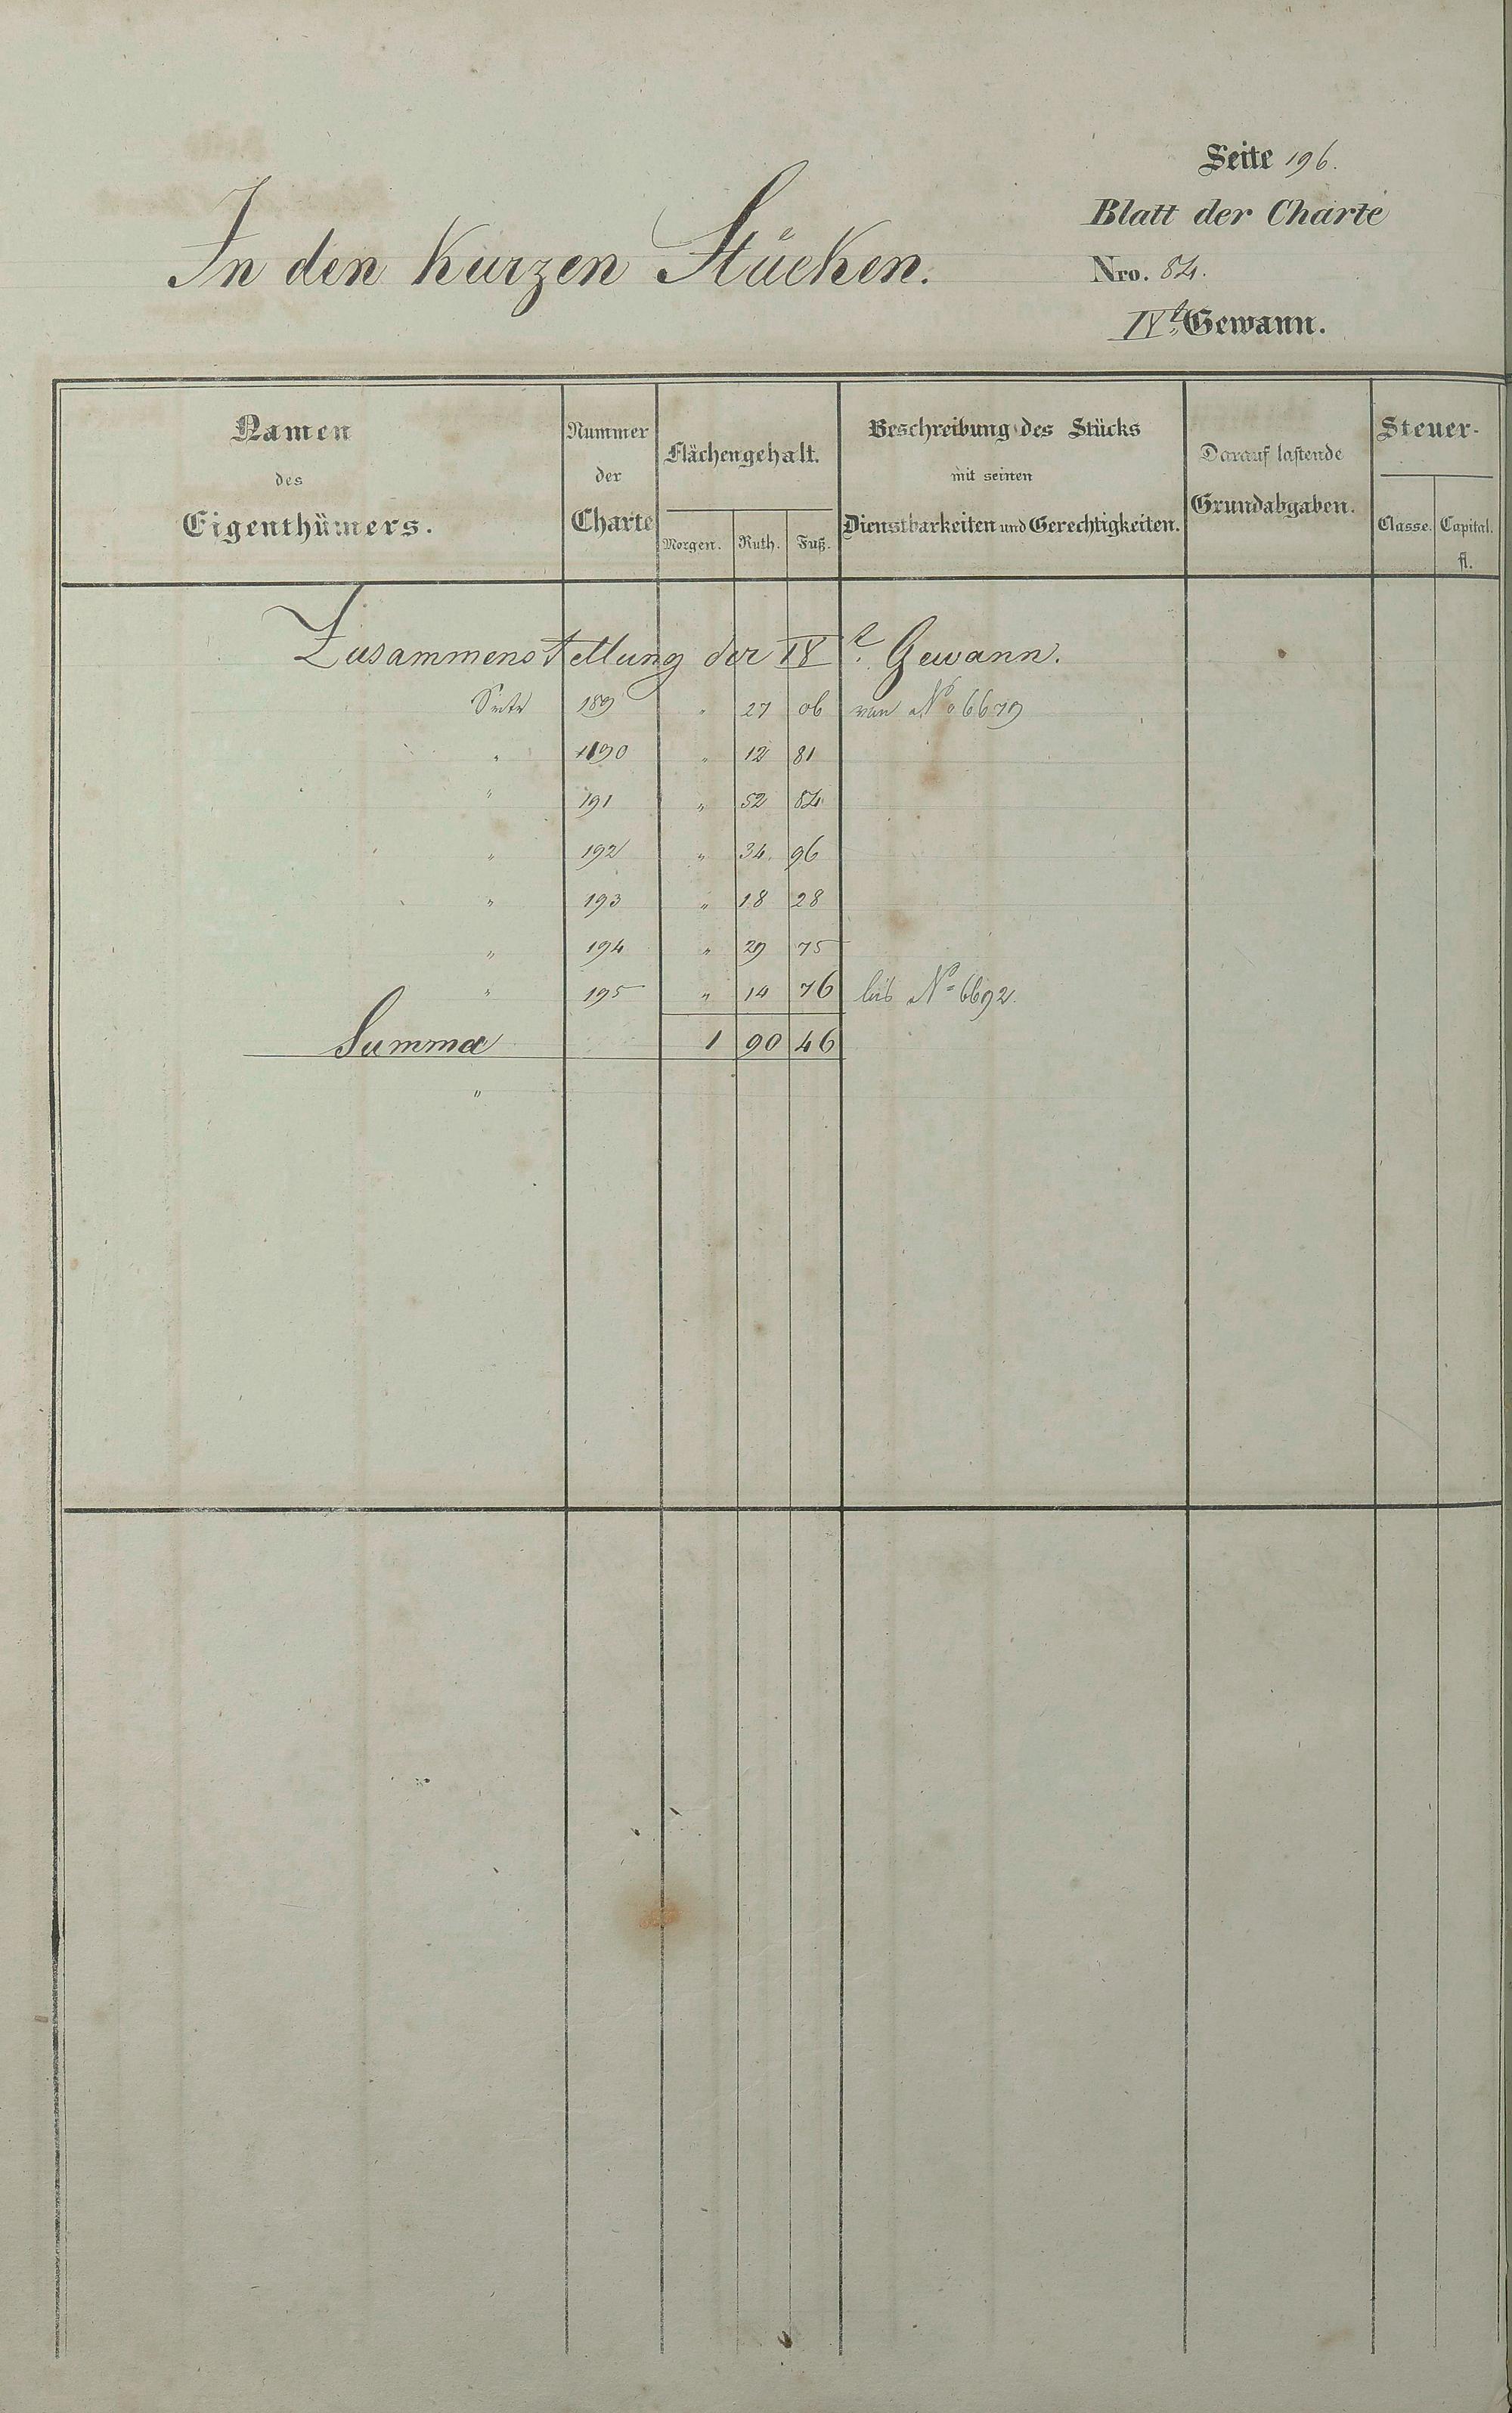 Seite 196.
Blatt der Charte
In den Kurzen Stücken.
Nro. 84.
IVt. Gewann.
Namen des Eigenthümers.
Nummer der Charte
Flächengehalt.
Morgen. Ruth. Fuß.
Beschreibung des Stücks mit seinen Dienstbarkeiten und Gerechtigkeiten.
Darauf lastende Grundabgaben.
Steuer-
Classe. Capital. fl.
Zusammenstellung der IVt. Gewann.
Seite 189 " 27 06 von No 6679
" 190 " 12 81
" 191 " 52 84
" 192 " 34. 96
" 193 " 18 28
" 194 " 29 75
" 195 " 14 76 bis No 6692.
Summa 1 90 46
"